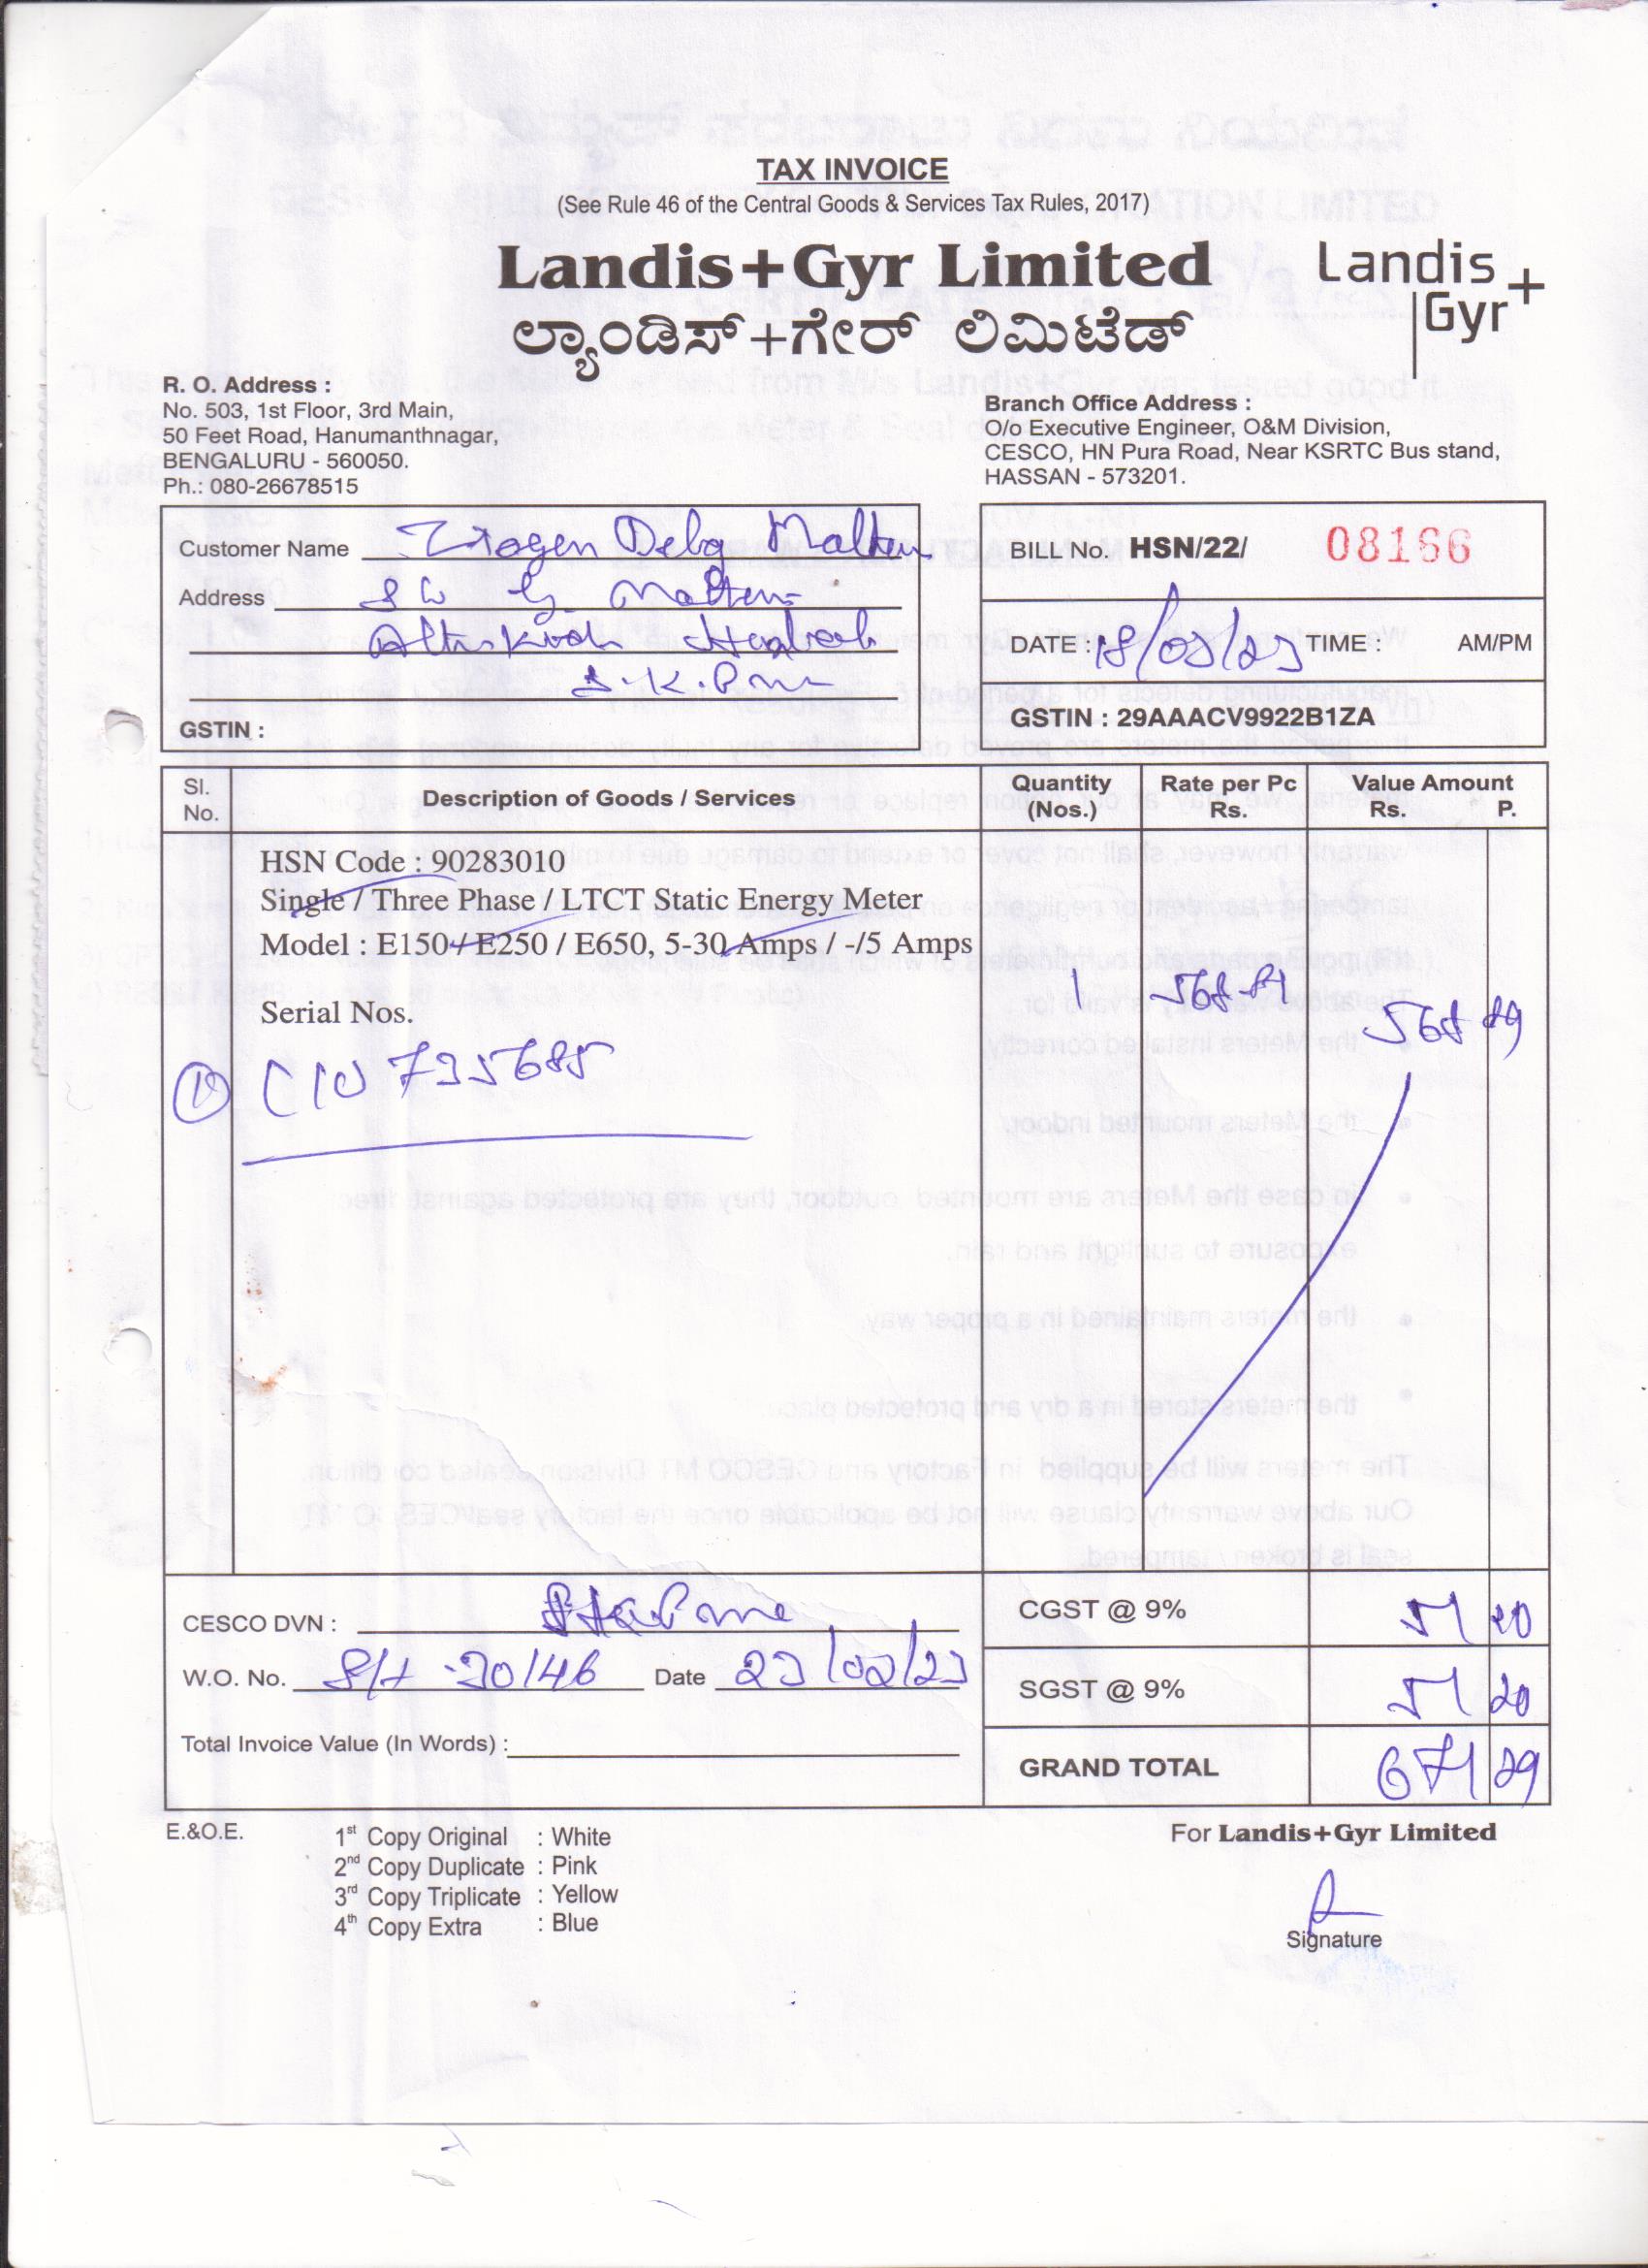 TAX INVOICE
(See Rule 46 of the Central Goods & Services Tax Rules, 2017)
Landis+Gyr Limited
ಲ್ಯಾಂಡಿಸ್+ಗೇರ್ ಲಿಮಿಟೆಡ್
Landis+
Gyr
R. O. Address :
No. 503, 1st Floor, 3rd Main,
50 Feet Road, Hanumanthnagar,
BENGALURU - 560050.
Ph.: 080-26678515
Branch Office Address :
O/o Executive Engineer, O&M Division,
CESCO, HN Pura Road, Near KSRTC Bus stand,
HASSAN - 573201.
Customer Name
Address
GSTIN :
BILL No. HSN/22/ 08166
DATE : 18/03/23 TIME : AM/PM
GSTIN : 29AAACV9922B1ZA
Sl. No. Description of Goods / Services Quantity (Nos.) Rate per Pc Rs. Value Amount Rs. P.
HSN Code : 90283010
Single / Three Phase / LTCT Static Energy Meter
Model : E150 / E250 / E650, 5-30 Amps / -/5 Amps
1 568-89 568 89
Serial Nos.
CESCO DVN :
W.O. No. Date 23/02/23
Total Invoice Value (In Words) :
CGST @ 9% 51 20
SGST @ 9% 51 20
GRAND TOTAL 671 29
E.&O.E.
1st Copy Original : White
2nd Copy Duplicate : Pink
3rd Copy Triplicate : Yellow
4th Copy Extra : Blue
For Landis+Gyr Limited
Signature